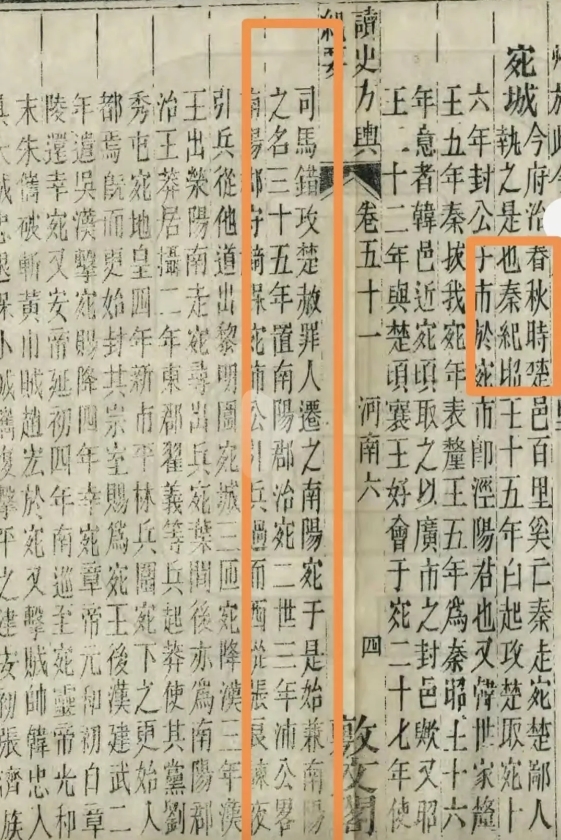 宛城
今府治春秋時楚邑百里奚亡秦走宛楚鄙人
執之是也秦紀昭王十五年白起攻楚取宛十
六年封公子市於宛市卽涇陽君也又韓世家釐
王五年秦拔我宛年表釐王五年爲秦昭王十六
年意者韓邑近宛頃取之以廣市之封邑歟又耶
王二十二年與楚頃襄王好會于宛二十七年使
讀史方輿紀要 卷五十一 河南六 四 敷文閣
司馬錯攻楚赦罪人遷之南陽宛于是始兼南陽
之名三十五年置南陽郡治宛二世三年沛公畧
南陽郡守齮保宛沛公引兵過而西從張良諫夜
引兵從他道出黎明圍宛城三匝宛降漢三年漢
王出滎陽南走宛尋出兵宛葉間後亦爲南陽郡
治王莽居攝二年東郡翟義等兵起莽使其黨劉
秀屯宛地皇四年新市平林兵圍宛下之更始入
都焉旣而更始封其宗室賜爲宛王後漢建武二
年遣吳漢擊宛賜降四年幸宛章帝元和初自章
陵還幸宛又安帝延初四年南巡至宛靈帝光和
末朱儁破斬黃巾賊趙宏於宛又擊賊帥韓忠入